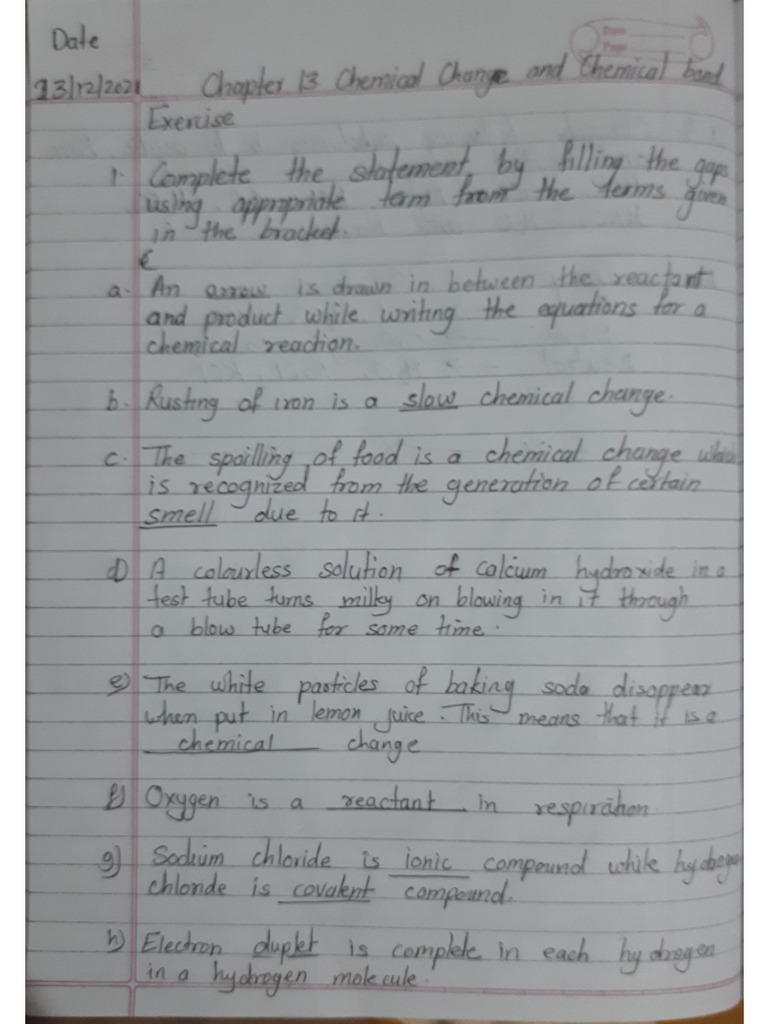 Date
13/12/2021 Chapter 13 Chemical Change and Chemical bond
Exercise
1. Complete the statement by filling the gaps
using appropriate term from the terms given
in the bracket.
a. An arrow is drawn in between the reactant
and product while writing the equations for a
chemical reaction.
b. Rusting of iron is a slow chemical change.
c. The spoilling of food is a chemical change which
is recognized from the generation of certain
smell due to it.
d) A colourless solution of calcium hydroxide in a
test tube turns milky on blowing in it through
a blow tube for some time.
e) The white particles of baking soda disappear
when put in lemon juice. This means that it is a
chemical change
f) Oxygen is a reactant in respiration.
g) Sodium chloride is ionic compound while hydrogen
chloride is covalent compound.
h) Electron duplet is complete in each hydrogen
in a hydrogen molecule.